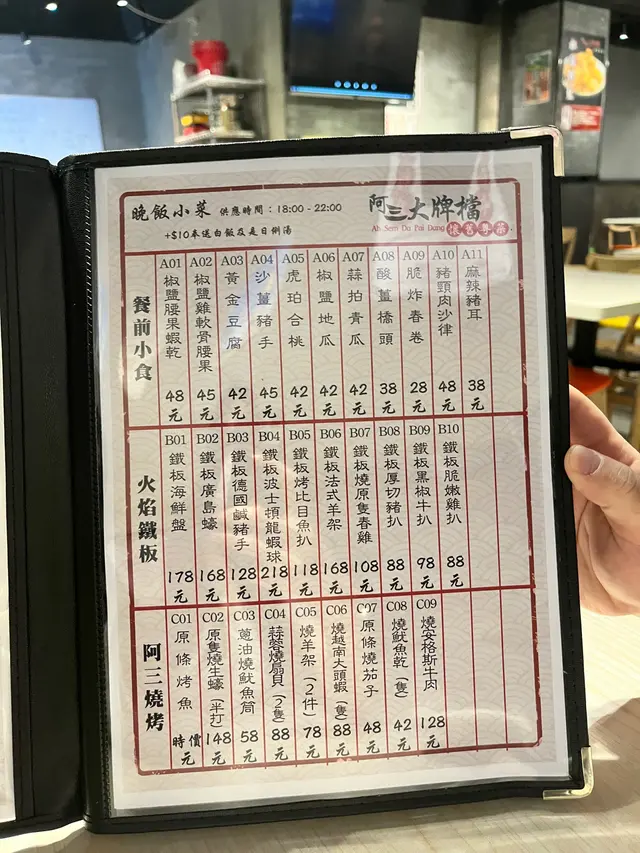 晚飯小菜 供應時間：18:00 - 22:00
+$10奉送白飯及是日例湯
阿三大牌檔
Ah Sem Da Pai Dang 懷舊粵菜
餐前小食
A01 椒鹽腰果蝦乾 48元
A02 椒鹽雞軟骨腰果 45元
A03 黃金豆腐 42元
A04 沙薑豬手 45元
A05 虎珀合桃 42元
A06 椒鹽地瓜 42元
A07 蒜拍青瓜 42元
A08 酸薑橋頭 38元
A09 脆炸春卷 28元
A10 豬頸肉沙律 48元
A11 麻辣豬耳 38元
火焰鐵板
B01 鐵板海鮮盤 178元
B02 鐵板廣島蠔 168元
B03 鐵板德國鹹豬手 128元
B04 鐵板波士頓龍蝦球 218元
B05 鐵板烤比目魚扒 118元
B06 鐵板法式羊架 168元
B07 鐵板燒原隻春雞 108元
B08 鐵板厚切豬扒 88元
B09 鐵板黑椒牛扒 98元
B10 鐵板脆嫩雞扒 88元
阿三燒烤
C01 原條烤魚 時價元
C02 原隻燒生蠔（半打） 148元
C03 蔥油燒魷魚筒 58元
C04 蒜蓉燒扇貝（2隻） 88元
C05 燒羊架（2件） 78元
C06 燒越南大頭蝦（隻） 88元
C07 原條燒茄子 48元
C08 燒魷魚乾（隻） 42元
C09 燒安格斯牛肉 128元